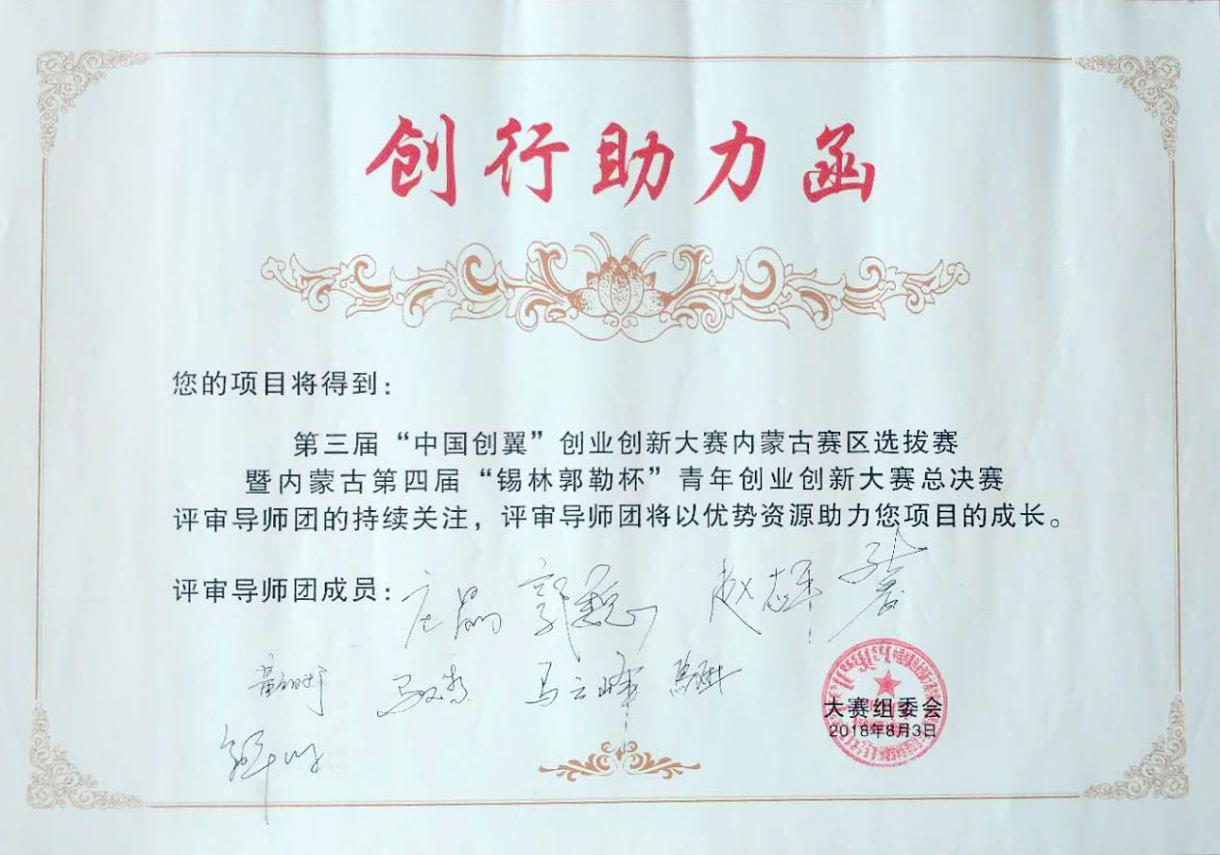 创行助力函
您的项目将得到：
第三届“中国创翼”创业创新大赛内蒙古赛区选拔赛
暨内蒙古第四届“锡林郭勒杯”青年创业创新大赛总决赛
评审导师团的持续关注，评审导师团将以优势资源助力您项目的成长。
评审导师团成员：庄晶
马云峰
大赛组委会
2018年8月3日